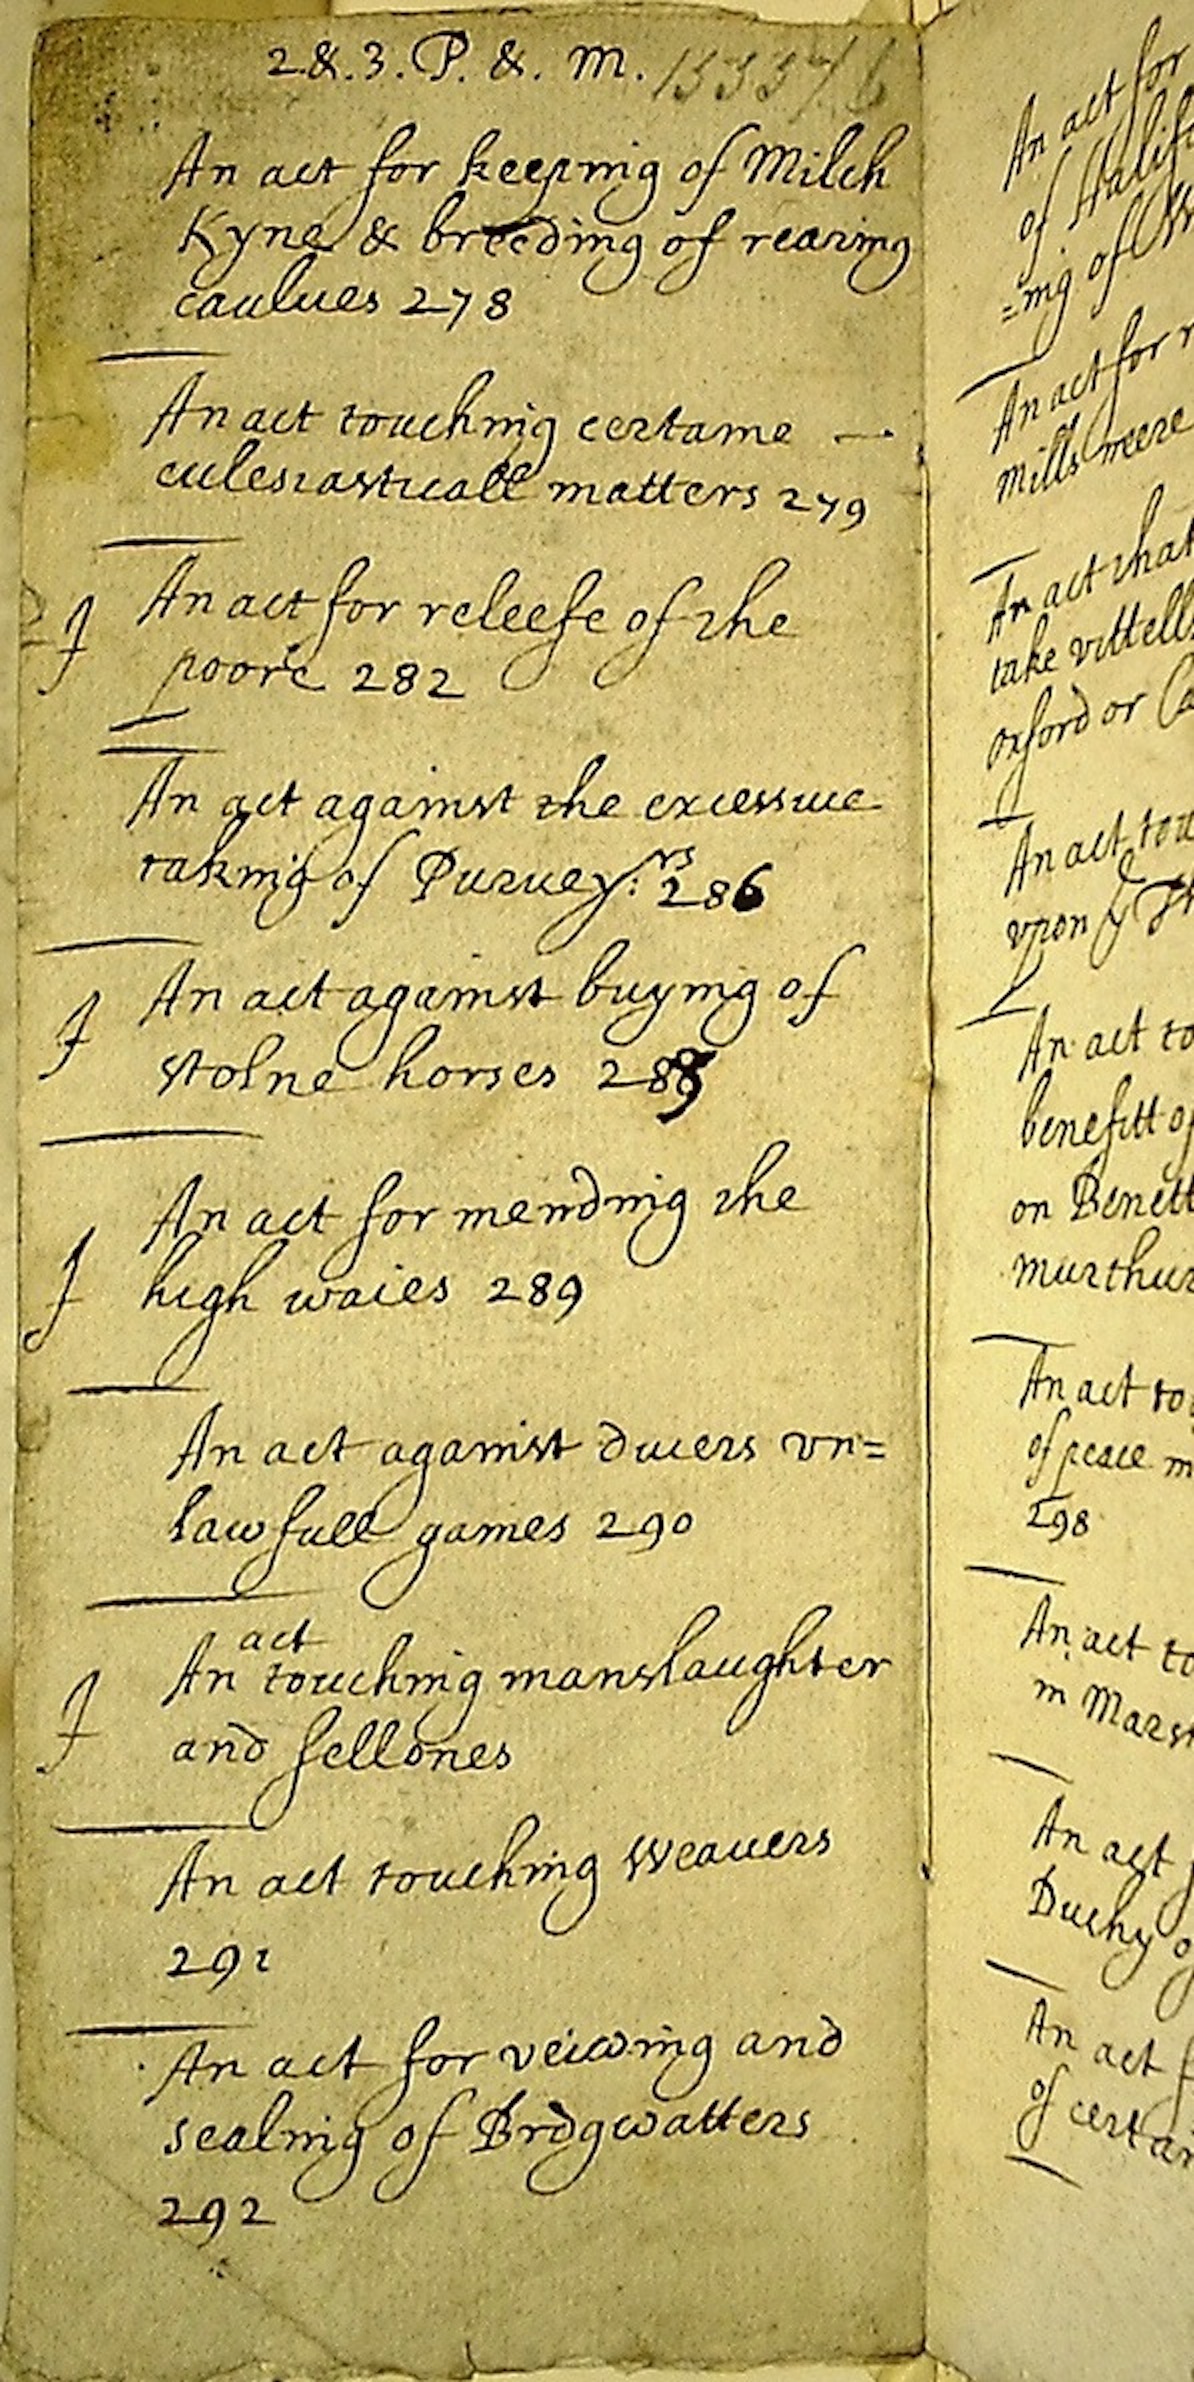 2.&.3. P. &. M.
An act for keeping of Milch
Kyne & breeding of rearing
caulues 278
An act touching certaine
eclesiasticall matters 279
J An act for releefe of the
poore 282
An act against the excessiue
taking of Puruey:rs 286
J An act against buying of
stolne horses 288
An act for mending the
J high waies 289
An act against diuers vn=
lawfull games 290
act
An touching manslaughter
J and fellones
An act touching Weauers
291
An act for veiwing and
sealing of Brdgwatters
292
An act for
of Halif
=ing of W
An act for r
mills weere
An act that
take vittells
oxford or Ca
An act tou
vpon ye Th
An act to
benefitt of
on Benett
murthur
An act to
of peace in
298
An act to
in Mars
An act f
Duchy o
An act f
of certai